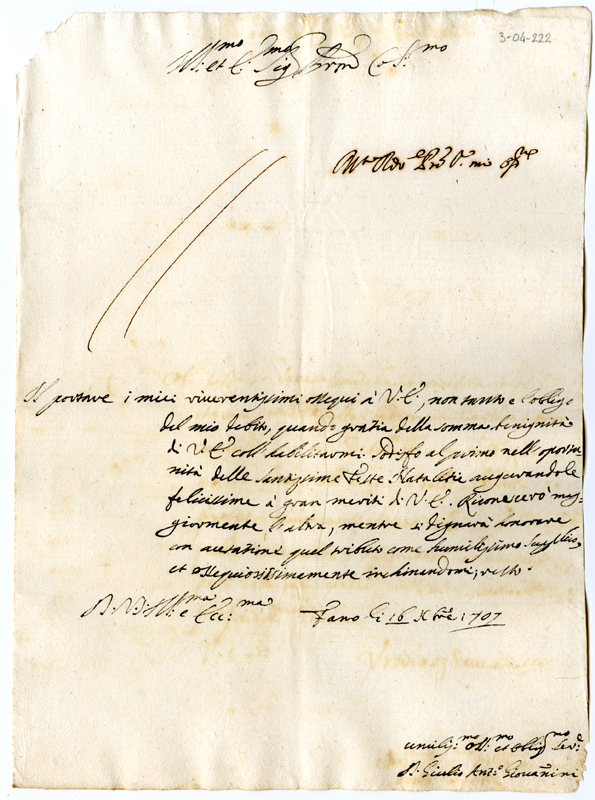 3-04-222
Ill:mo et E:mo Sig:
Il portare i miei riverentissimi ossequi à V. E:, non tanto è l'obligo
del mio debito, quando grazia della somma benignità
di V. E: coll habilitarmi. Sodisfo al primo nell'oportu
nità delle Santissime Feste Natalitie augurandole
felicissime à gran meriti di V. E: Riconoscerò mag-
giormente l'altra, mentre si dignarà honorare
con quel tributo come humilissimo
et ossequiosissimamente inchinandomi, resto.
D. V. Ill:ma e Ecc:ma
Fano li 16 Xbre 1707
umiliss:mo et oblig:mo
D. Giulio Ant:o Giovannini